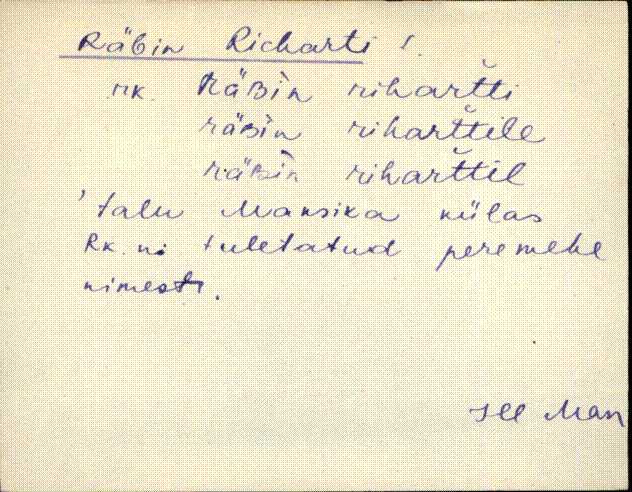 Räbin Richarti
rk. räbìn rihartti
räbìn riharttile
räbìn riharttil
'talu Mansika külas
Rk. ni tuletatud peremehe
nimest.
Man